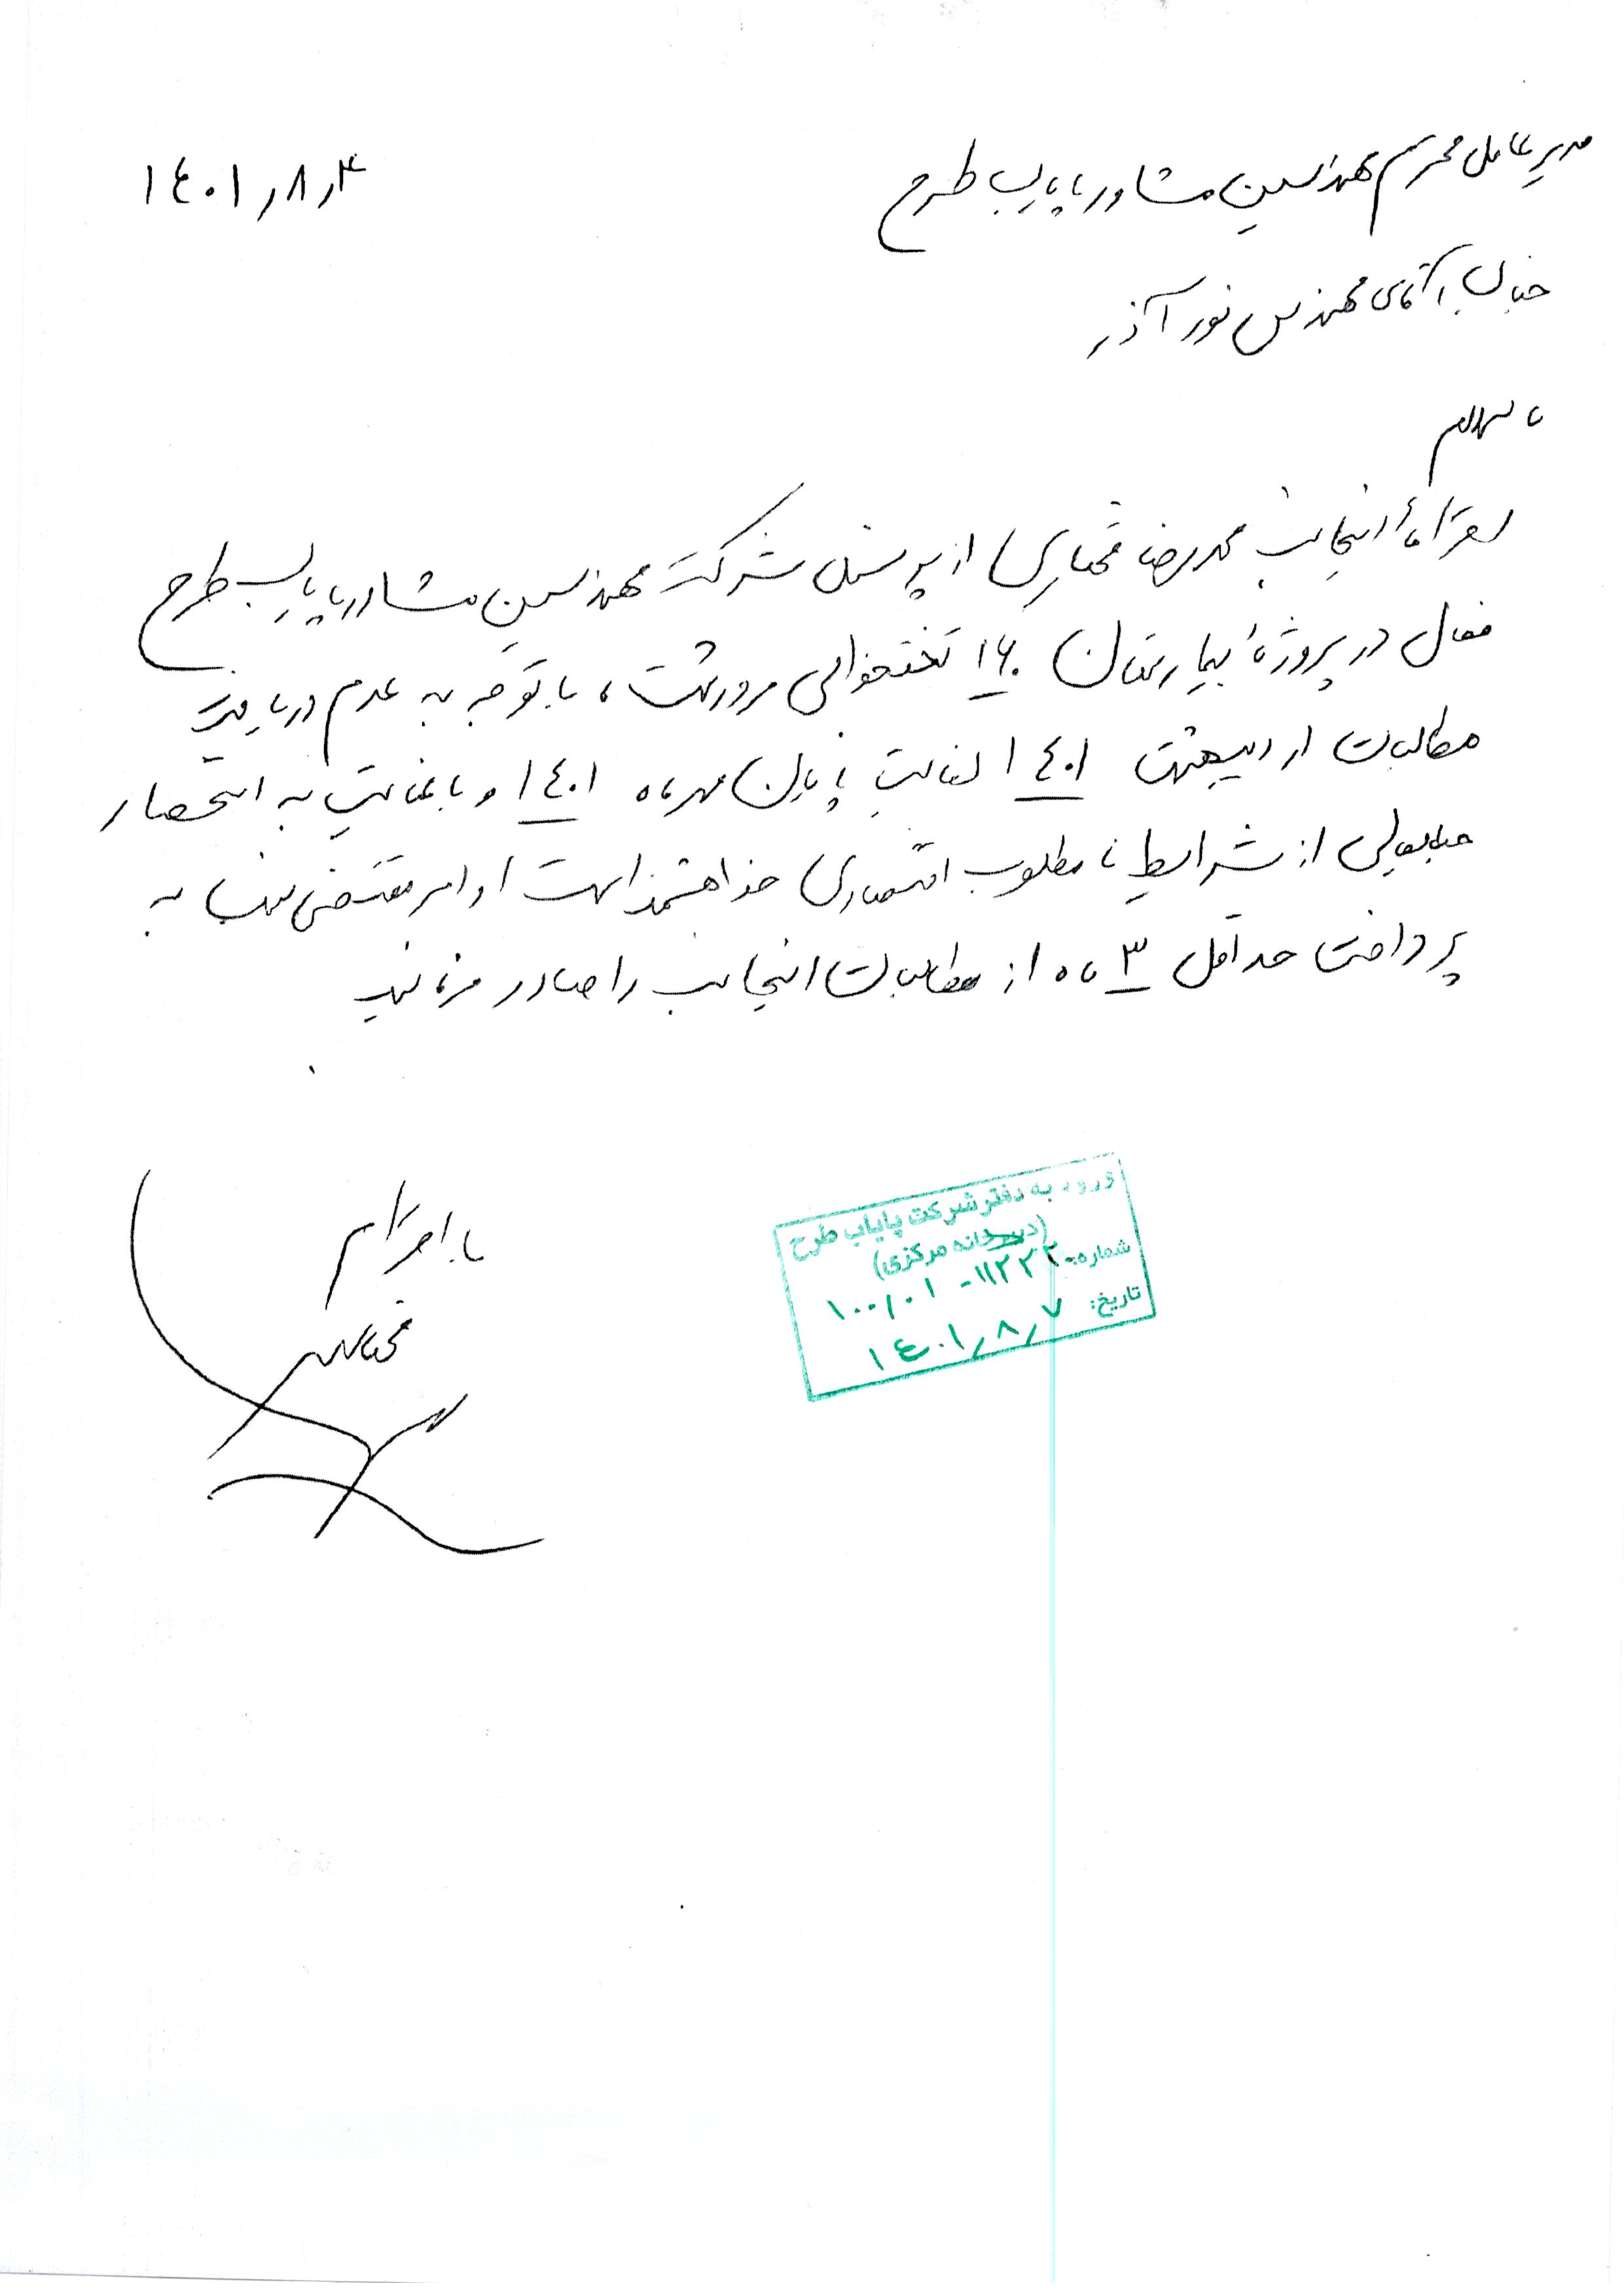 مدیر عامل محترم مهندسین مشاور پایاب طرح
۱۴۰۱/۸/۴
جناب آقای مهندس نورآذر
با سلام
احتراماً اینجانب محمدرضا مختاری از پرسنل شرکت مهندسین مشاور پایاب طرح
فعال در پروژه بیمارستان ۱۶۰ تختخوابی مرودشت، با توجه به عدم دریافت
مطالبات از اردیبهشت ۱۴۰۱ لغایت پایان مهرماه ۱۴۰۱ و با عنایت به استحضار
جنابعالی از شرایط نامطلوب اقتصادی خواهشمند است اوامر مقتضی نسبت به
پرداخت حداقل ۳ ماه از مطالبات اینجانب را صادر فرمائید
.
با احترام
مختاری
ورود به دفتر شرکت پایاب طرح
(دبیرخانه مرکزی)
شماره: ۱۰۰/۰۱-۱۱۲۳۲
تاریخ: ۱۴۰۱/۸/۷